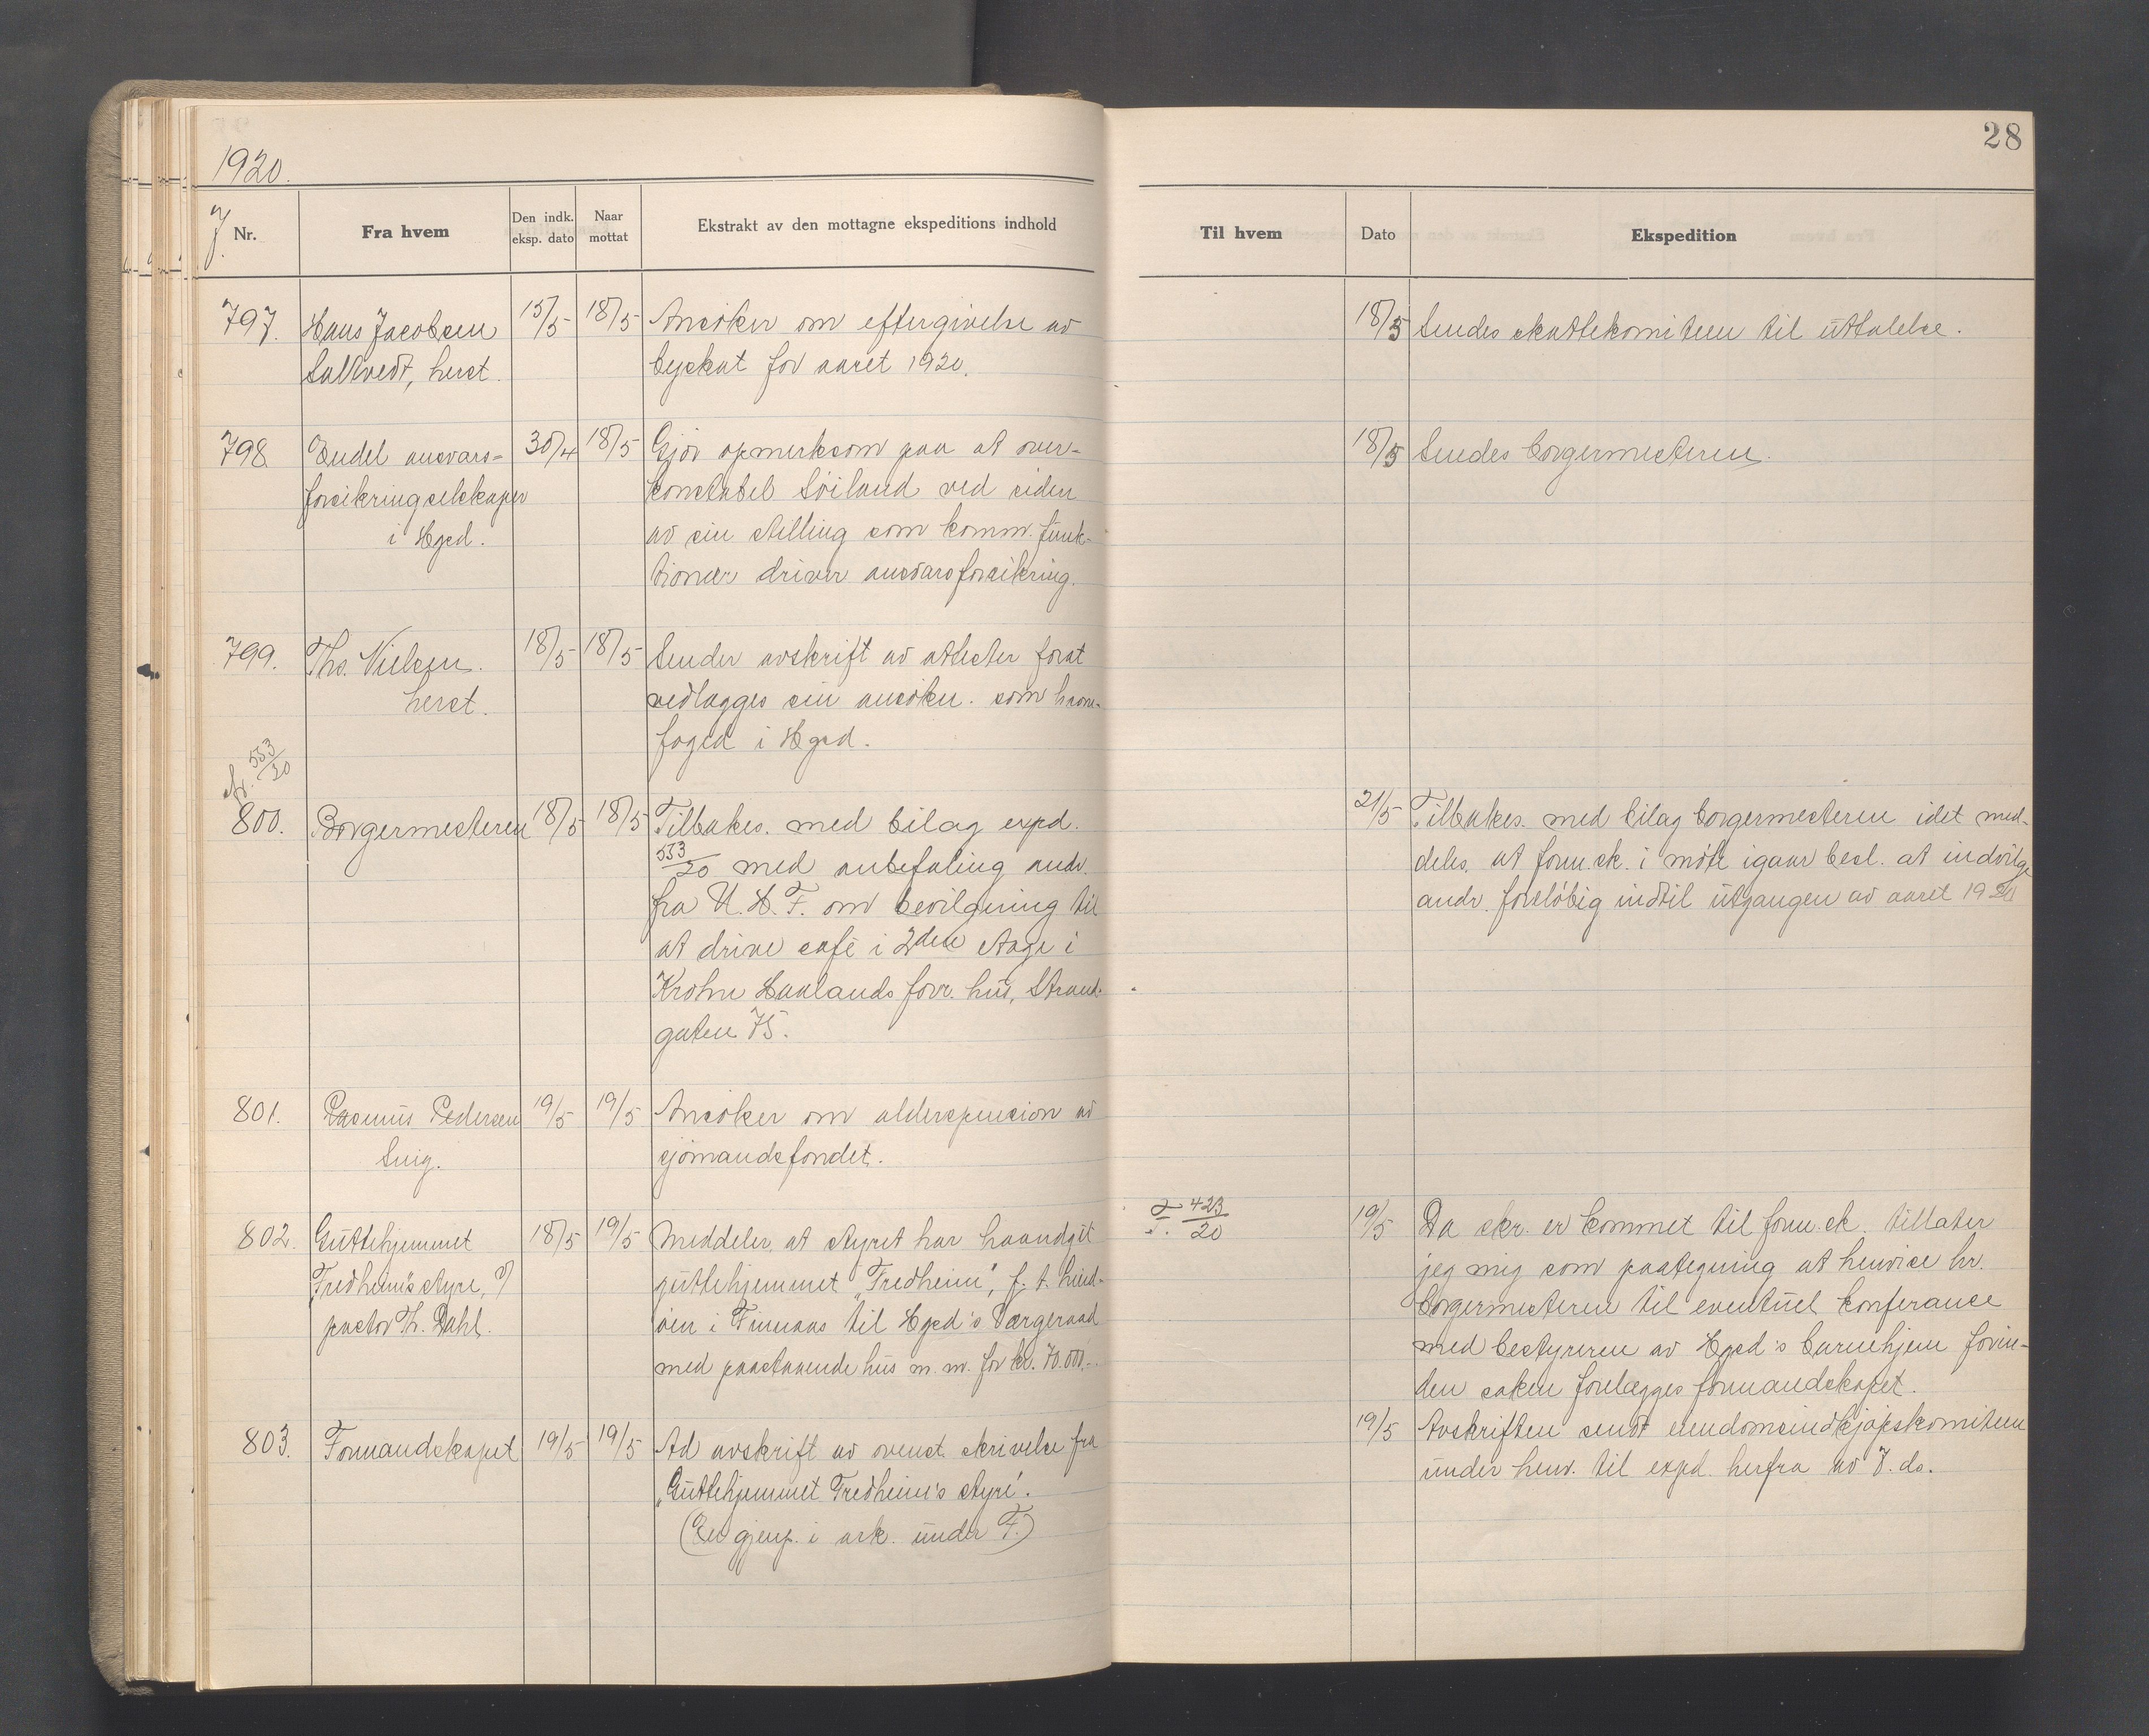 28
1920.
J. Nr.
Fra hvem
Den indk. eksp. dato
Naar mottat
Ekstrakt av den mottagne ekspeditions indhold
Til hvem
Dato
Ekspedition
797. Hans Jacobsen 15/5 18/5 Ansöker om eftergivelse av
Saltvedt, herst. byskat for aaret 1920.
18/5 Sendes skattekomiteen til uttalelse.
798 Endel ansvars- 30/4 18/5 Gjör opmerksom paa at over-
forsikringselskaper konstabel Söiland ved siden
i Hgsd. av sin stilling som komm. funk-
tionær driver ansvarsforsikring.
18/5 Sendes borgermesteren.
799. Ths. Nielsen 18/5 18/5 Sender avskrift av attester forat
herst. vedlægges sin ansöken. som havne-
foged i Hgsd.
cfr. 553/20
800. Borgermesteren 18/5 18/5 Tilbakes. med bilag expd.
553/20 med anbefaling andr.
fra U. H. F. om bevilgning til
at drive café i 2den etage i
Krohn Haalands forr. hus, Strand-
gaten 75.
21/5 Tilbakes. med bilag borgermesteren idet med-
deles, at form.sk. i möte igaar besl. at indvilge
andr. forelöbig indtil utgangen av aaret 1920
801. Rasmus Pedersen 19/5 19/5 Ansöker om alderspension av
Snig. sjömandsfondet.
802. Guttehjemmet 18/5 19/5 Meddeler, at styret har haandgit
„Fredheim"s styre, v/ guttehjemmet „Fredheim", f. t. Lind-
pastor Th. Dahl. öen i Finnaas til Hgsd's Værgeraad
med paastaaende hus m. m. for kr. 70.000.-
423/20
19/5 Da skr. er kommet til form.sk. tillater
jeg mig som paategning at henvise hr.
borgermesteren til eventuel konferance
med bestyreren av Hgsd's barnehjem forin-
den saken forelægges formandskapet.
803. Formandskapet 19/5 19/5 Ad avskrift av ovenst. skrivelse fra
„Guttehjemmet Fredheim's styre".
(En gjenp. i ark. under F.)
19/5 Avskriften sendt eiendomsindkjöpskomiteen
under henv. til expd. herfra av 7. ds.